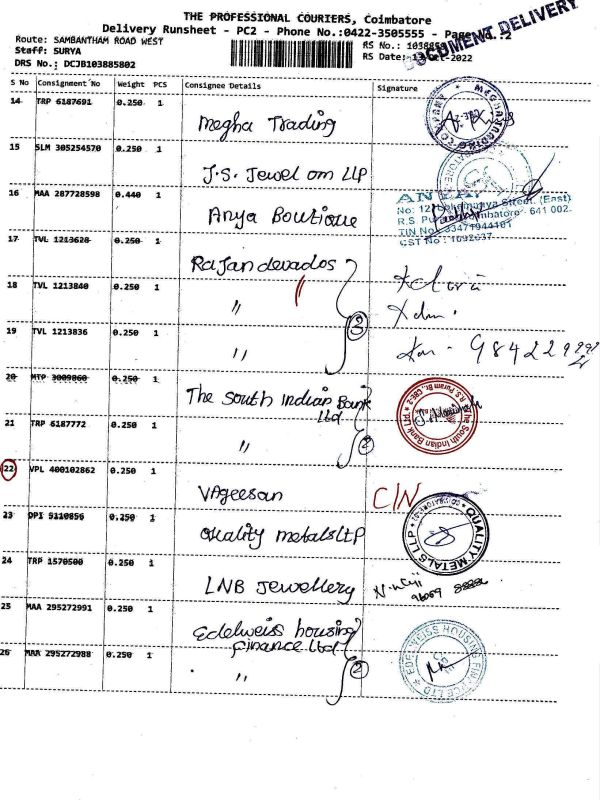 THE PROFESSIONAL COURIERS, Coimbatore
Delivery Runsheet - PC2 - Phone No.:0422-3505555 - Page No.:2
DOCUMENT DELIVERY
Route: SAMBANTHAM ROAD WEST
RS No.:
Staff: SURYA
RS Date: -Oct-2022
DRS No.: DCJB103885802
S No Consignment No Weight PCS Consignee Details Signature
14 TRP 6187691 0.250 1 Megha Trading
15 SLM 305254570 0.250 1 J.S. Jewel om LLP
16 MAA 287728598 0.440 1 Anya Boutique
No: Street, (East)
R.S. Puram, Coimbatore - 641 002.
TIN No: 33471944101
CST No:
17 TVL 1213628 0.250 1 Rajan devados
18 TVL 1213840 0.250 1 "
19 TVL 1213836 0.250 1 "
3
20 MTP 3009860 0.250 1 The South Indian Bank Ltd
The South Indian Bank Ltd R.S Puram Br., CBE-2
21 TRP 6187772 0.250 1 "
2
22 VPL 400102862 0.250 1 VAgeesan C/N
23 OPI 5110856 0.250 1 Quality metals LLP
QUALITY METALS LLP
24 TRP 1570500 0.250 1 LNB Jewellery
25 MAA 295272991 0.250 1 Edelweiss housing finance Ltd
EDELWEISS HOUSING FINANCE LTD
26 MAA 295272988 0.250 1 "
2